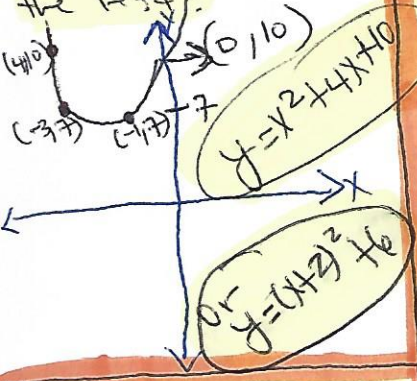 the
(0, 10)
(4,10)
(-3,7)
(-1,7)
7
y=x²+4x+10
x
Or
y=(x+2)²+6